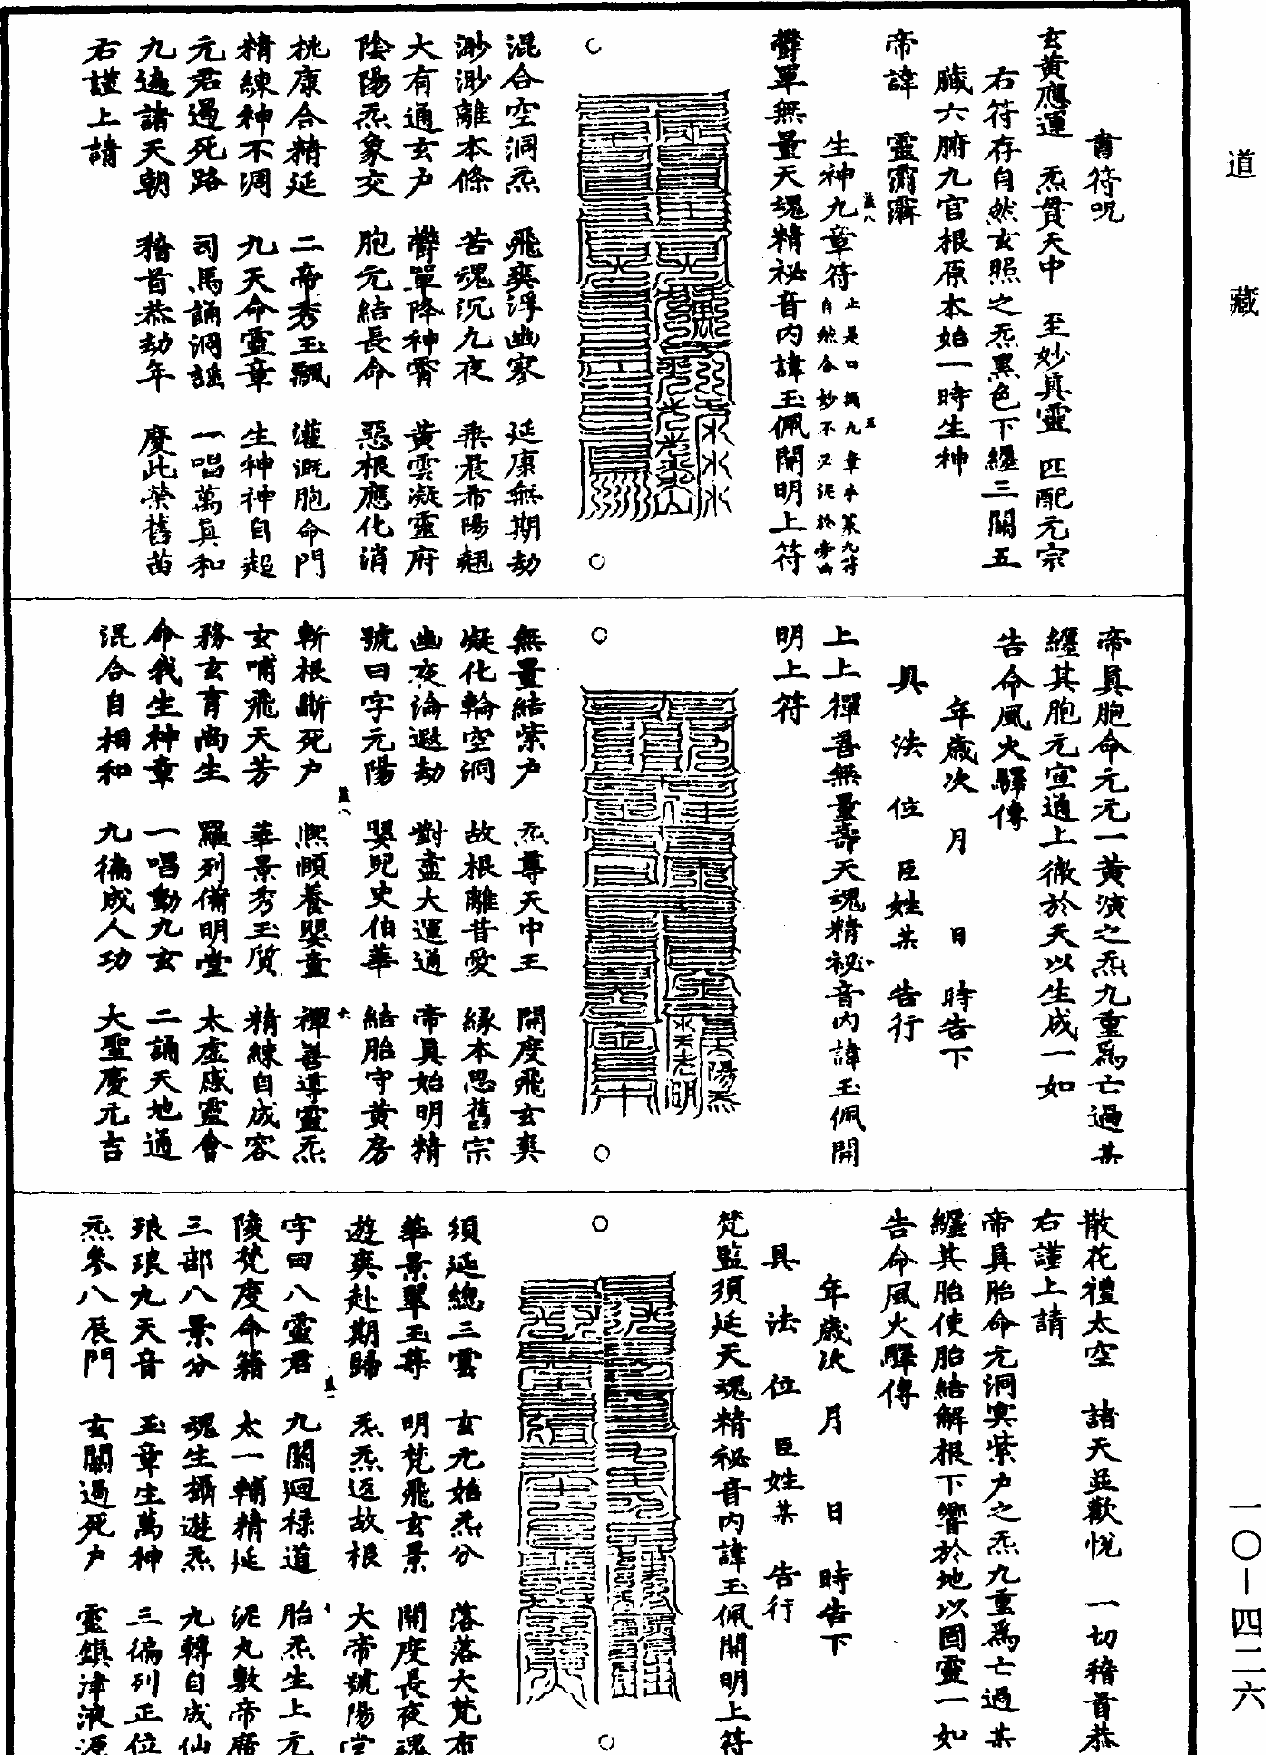 道藏
一〇—四二六
書符呪
玄黃應運 炁貫天中 至妙真靈 匹配元宗
右符存自然玄照之炁黑色下纏三關五
臟六腑九宮根原本始一時生神
帝諱 靈
生神九章符
欎單無量天魂精祕音內諱玉佩開明上符
混合空洞炁 飛爽浮幽寥 延康無期劫
渺渺離本條 苦魂沉九夜 乘晨希陽翹
大有通玄戶 欎單降神霄 黃雲凝靈府
陰陽炁象交 胞元結長命 惡根應化消
桃康合精延 二帝秀玉飄 灌溉胞命門
精練神不凋 九天命靈章 生神神自超
元君遏死路 司馬誦洞謠 一唱萬真和
九遍諸天朝 稽首恭劫年 慶此榮舊苗
右謹上請
帝真胞命元元一黃演之炁九重為亡過某
纏其胞元宣通上徹於天以生成一如
告命風火驛傳
年歲次 月 日 時告下
具 法 位 臣姓某 告行
上上禪善無量壽天魂精祕音內諱玉佩開
明上符
無量結紫戶 炁尊天中王 開度飛玄爽
凝化輪空洞 故根離昔愛 緣本思舊宗
幽夜淪遐劫 對盡大運通 帝真始明精
號曰字元陽 嬰兒史伯華 結胎守黃房
斬根斷死戶 熙頤養嬰童 禪善導靈炁
玄哺飛天芳 華景秀玉質 精練自成容
務玄育尚生 羅列備明堂 太虛感靈會
命我生神章 一唱動九玄 二誦天地通
混合自相和 九徧成人功 大聖慶元吉
散花禮太空 諸天並歡悅 一切稽首恭
右謹上請
帝真胎命元洞冥紫戶之炁九重為亡過某
纏其胎使胎結解根下響於地以固靈一如
告命風火驛傳
年歲次 月 日 時告下
具 法 位 臣姓某 告行
梵監須延天魂精祕音內諱玉佩開明上符
須延總三雲 玄元始炁分 落落大梵布
華景翠玉尊 明梵飛玄景 開度長夜魂
遊爽赴期歸 炁炁返故根 大帝號陽堂
字曰八靈君 九關迴祿道 胎炁生上元
陵梵度命籍 太一輔精延 泥丸敷帝席
三部八景分 魂生攝遊炁 九轉自成仙
琅琅九天音 玉章生萬神 三徧列正位
炁參八辰門 玄關遏死戶 靈鎮津液源